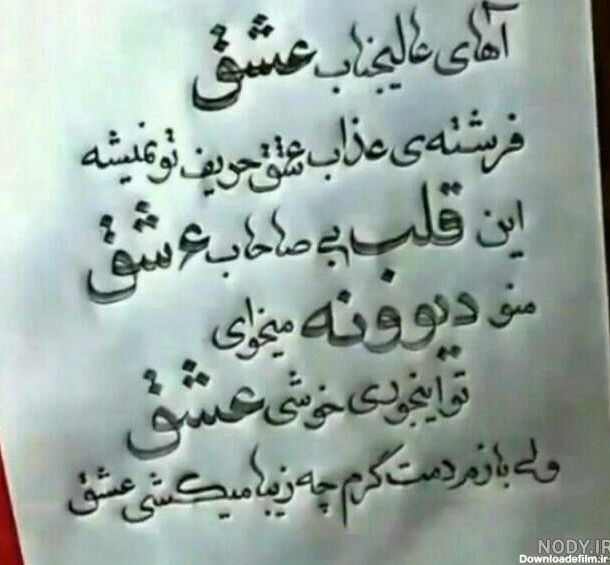 آهای عالیجناب عشق
فرشته‌ی عذاب عشق حریف تو نمیشه
این قلب بی صاحاب عشق
منو دیوونه میخوای
تو اینجوری خوشی عشق
ولی بازم دمت گرم چه زیبا میکشی عشق
NODY.IR
Downloadefilm.ir